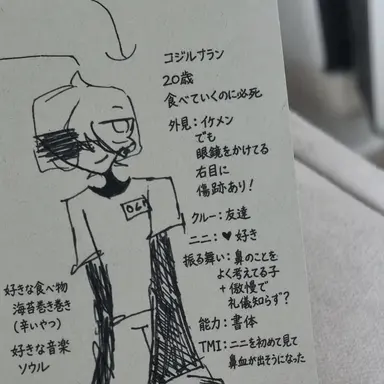 コジルサラン
20歳
食べていくのに必死
外見：イケメン
でも
眼鏡をかけてる
右目に
傷跡あり！
クルー：友達
ニニ：♥好き
振る舞い：鼻のことを
よく考えてる子
+傲慢で
礼儀知らず？
能力：書体
TMI：ニニを初めて見て
鼻血が出そうになった
好きな食べ物
海苔巻き巻き
（辛いやつ）
好きな音楽
ソウル